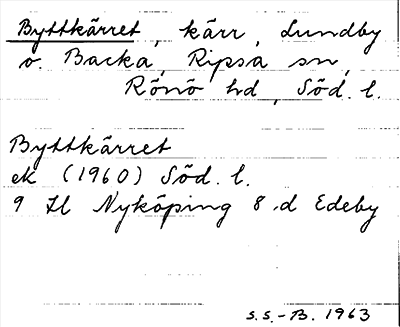 Byttkärret, kärr, Lundby
o. Backa, Ripsa sn,
Rönö hd, Söd. l.
Byttkärret
ek (1960) Söd. l.
9 H Nyköping 8 d Edeby
S.S.-B. 1963